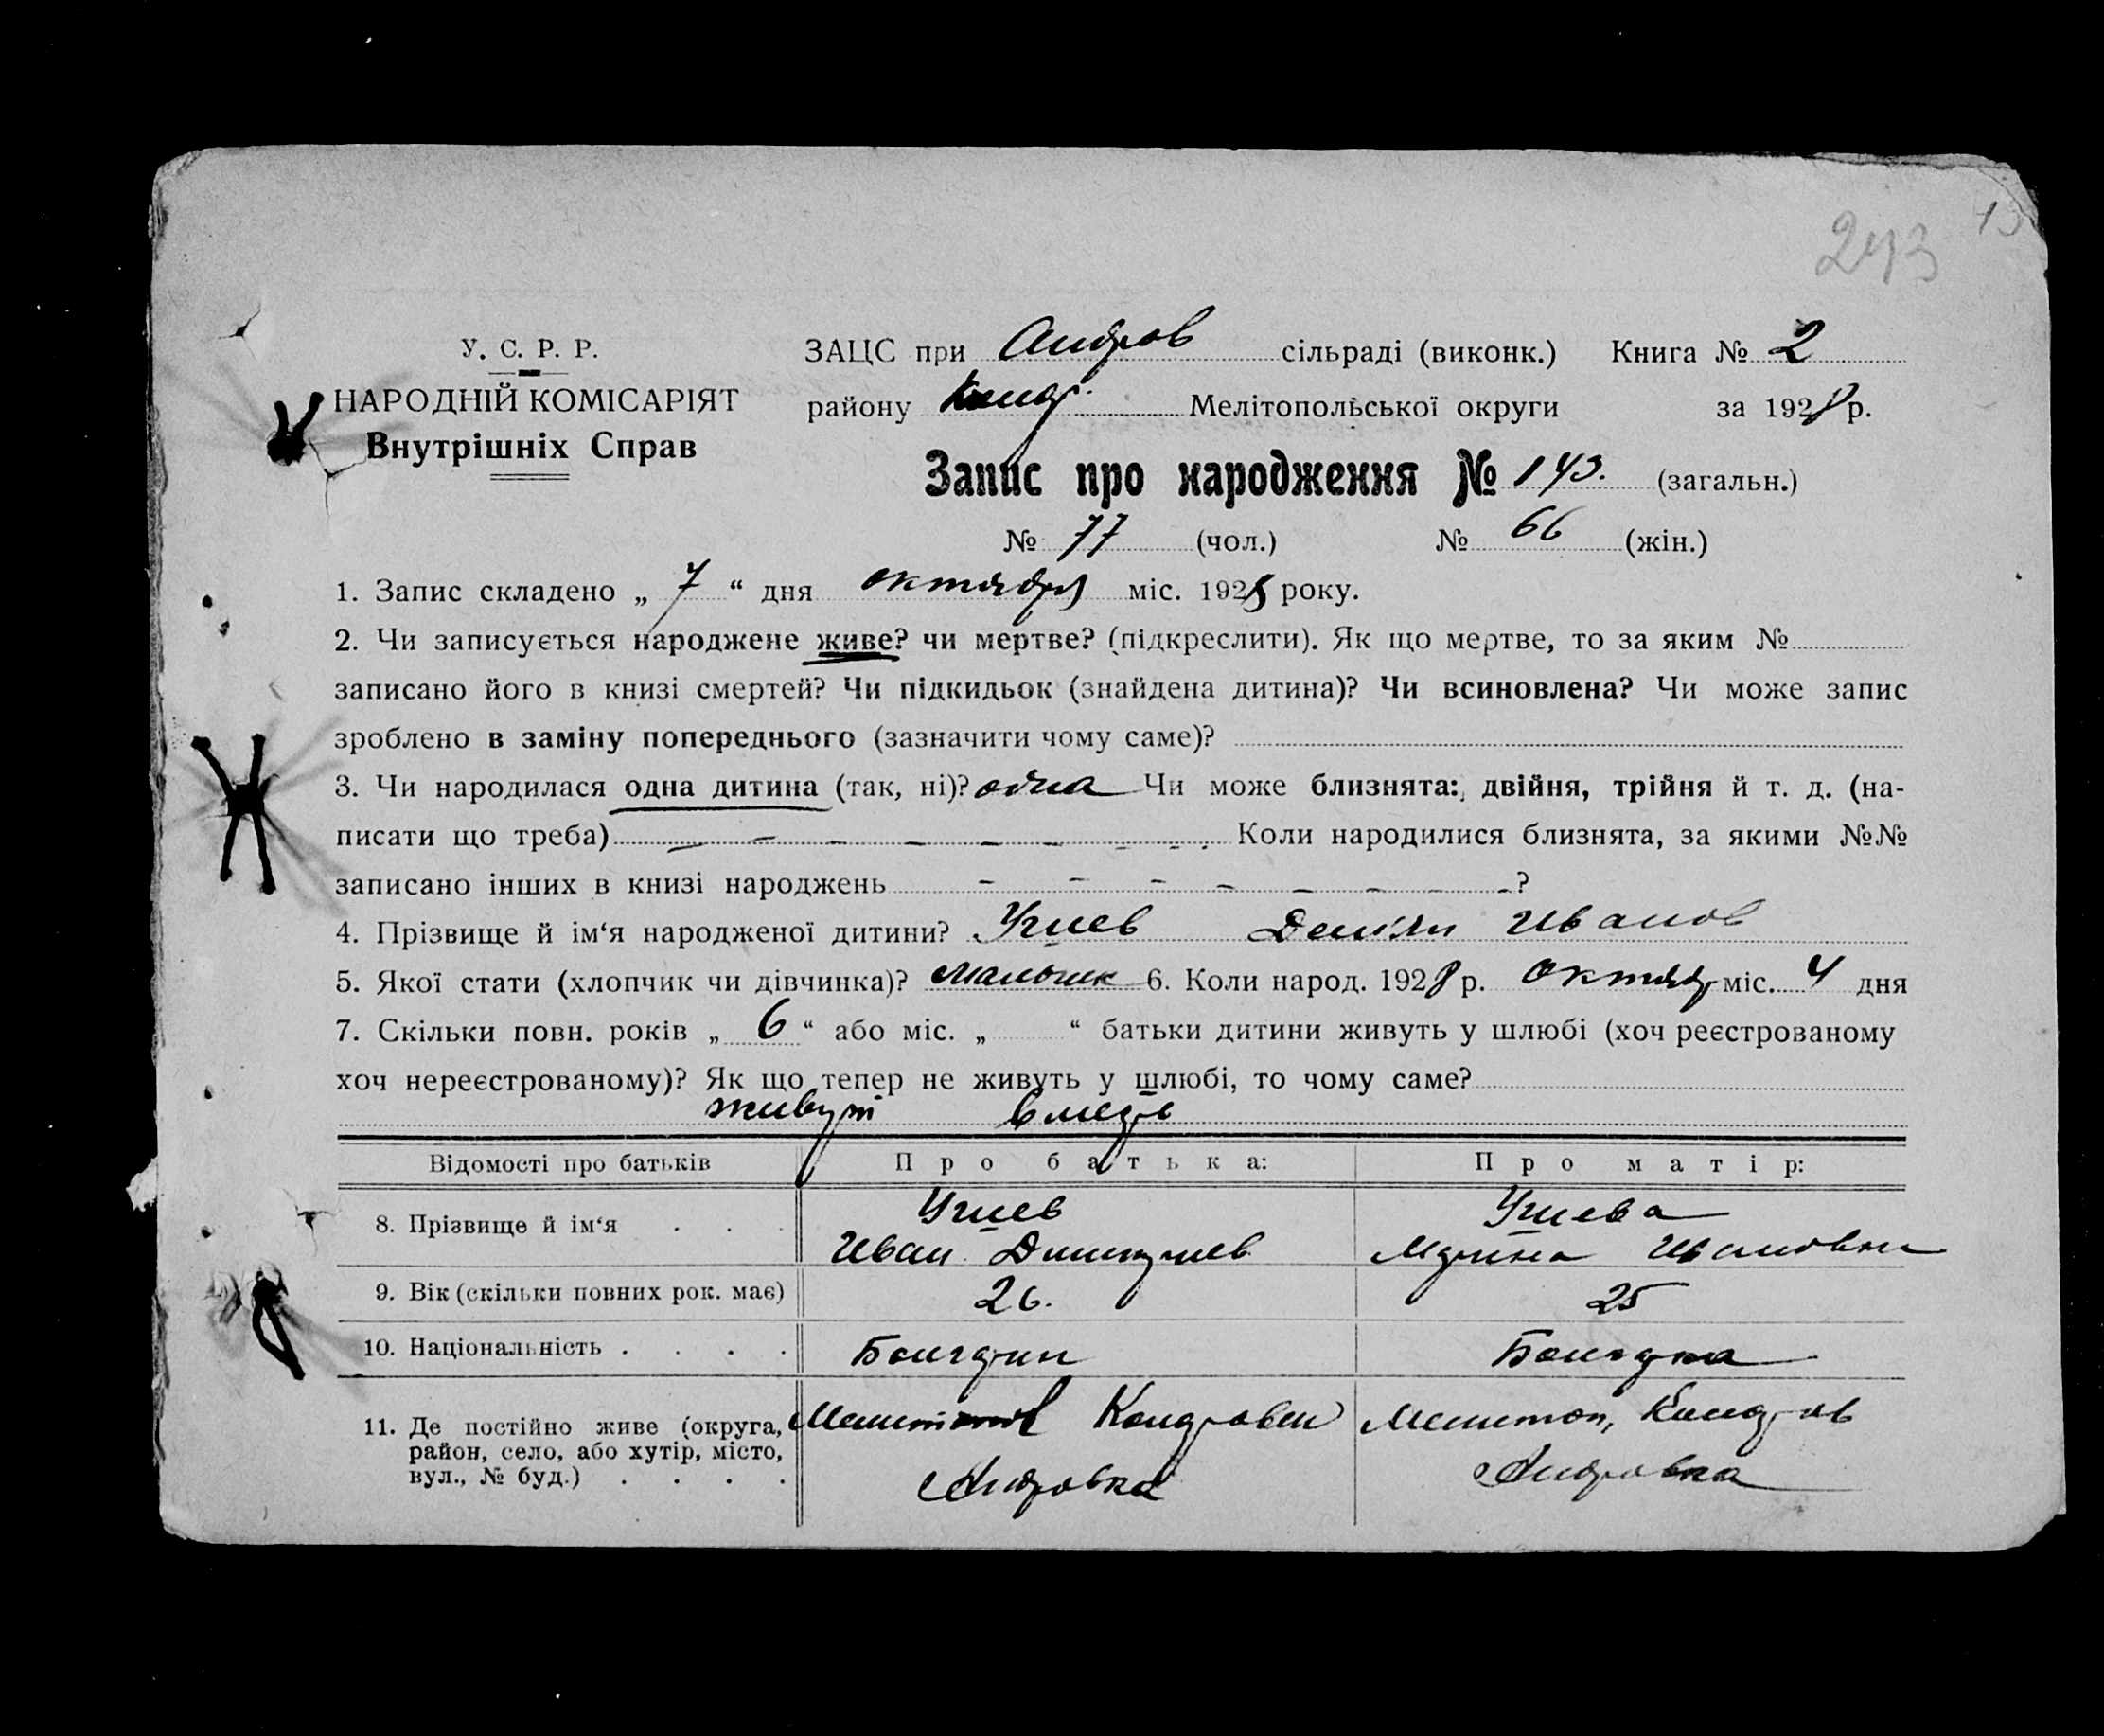 У. С. Р. Р.
НАРОДНІЙ КОМІСАРІЯТ
Внутрішніх Справ
ЗАЦС при Андров сільраді (виконк.) Книга № 2
району Мелітопольської округи за 1928 р.
Запис про народження № 143. (загальн.)
№ 77 (чол.) № 66 (жін.)
1. Запис складено „ 7 “ дня октября міс. 1928 року.
2. Чи записується народжене живе? чи мертве? (підкреслити). Як що мертве, то за яким №
записано його в книзі смертей? Чи підкидьок (знайдена дитина)? Чи всиновлена? Чи може запис
зроблено в заміну попереднього (зазначити чому саме)?
3. Чи народилася одна дитина (так, ні)? одна Чи може близнята: двійня, трійня й т. д. (на-
писати що треба) Коли народилися близнята, за якими №№
записано інших в книзі народжень ?
4. Прізвище й ім‘я народженої дитини? Узнев Иванов
5. Якої стати (хлопчик чи дівчинка)? мальчик 6. Коли народ. 1928 р. октябр міс. 4 дня
7. Скільки повн. років „ 6 “ або міс. „ “ батьки дитини живуть у шлюбі (хоч реєстрованому
хоч нереєстрованому)? Як що тепер не живуть у шлюбі, то чому саме?
живут
Відомості про батьків Про батька: Про матір:
8. Прізвище й ім‘я Узнев Узнева
Иван Марина Ивановна
9. Вік (скільки повних рок. має) 26. 25
10. Національність Болгарин Болгарка
11. Де постійно живе (округа, район, село, або хутір, місто, вул., № буд.) Мелитопол Мелитоп,
Андровка Андровка